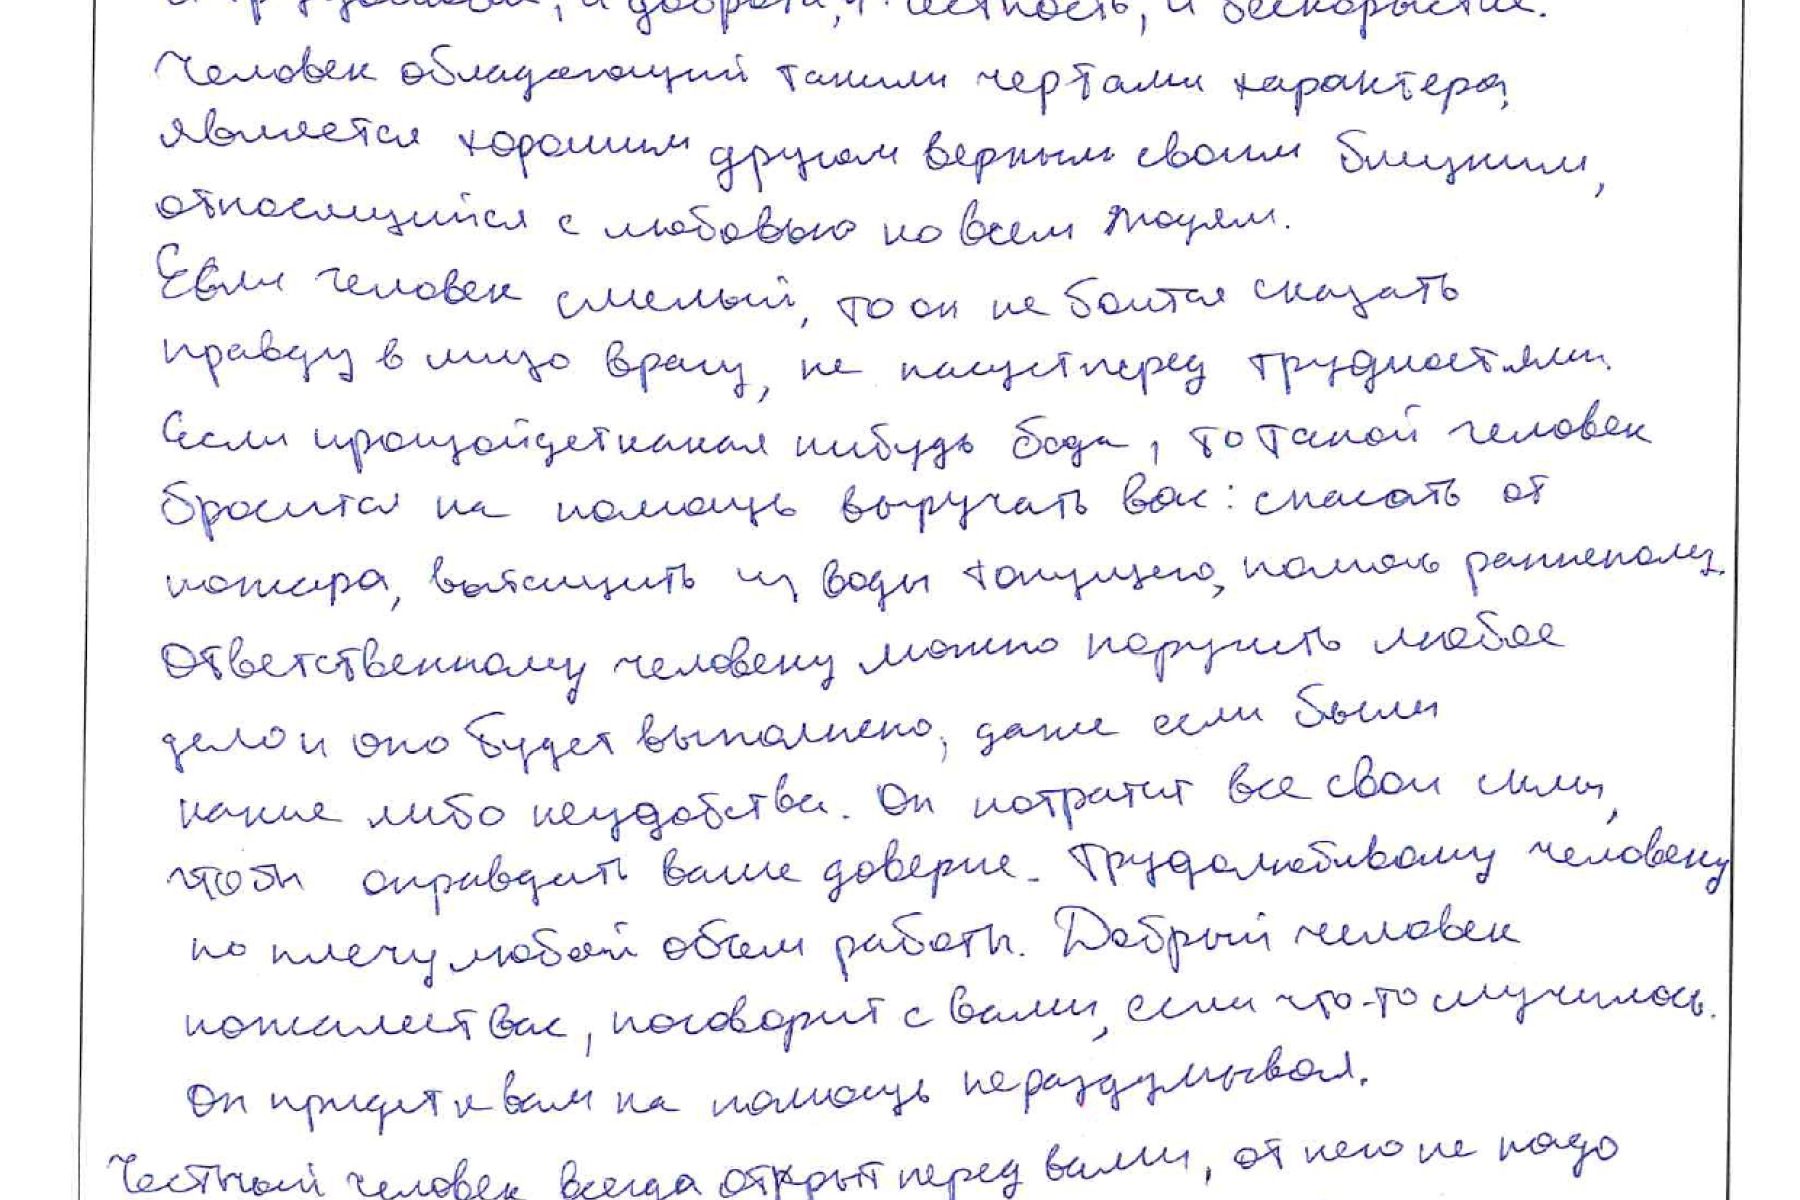 и доброта, и честность, и бескорыстие.
Человек обладающий такими чертами характера,
является хорошим другом верным своим близким,
относящийся с любовью ко всем людям.
Если человек смелый, то он не боится сказать
правду в лицо врагу, не пасует перед трудностями.
Если произойдет какая нибудь беда, то такой человек
бросится на помощь выручать вас: спасать от
пожара, вытащить из воды тонущего, помочь
Ответственному человеку можно поручить любое
дело и оно будет выполнено, даже если были
какие либо неудобства. Он потратит все свои силы,
чтобы оправдать ваше доверие. Трудолюбивому человеку
по плечу любой объем работы. Добрый человек
пожалеет вас, поговорит с вами, если что-то случилось.
Он придет к вам на помощь не раздумывая.
Честный человек всегда открыт перед вами, от него не надо